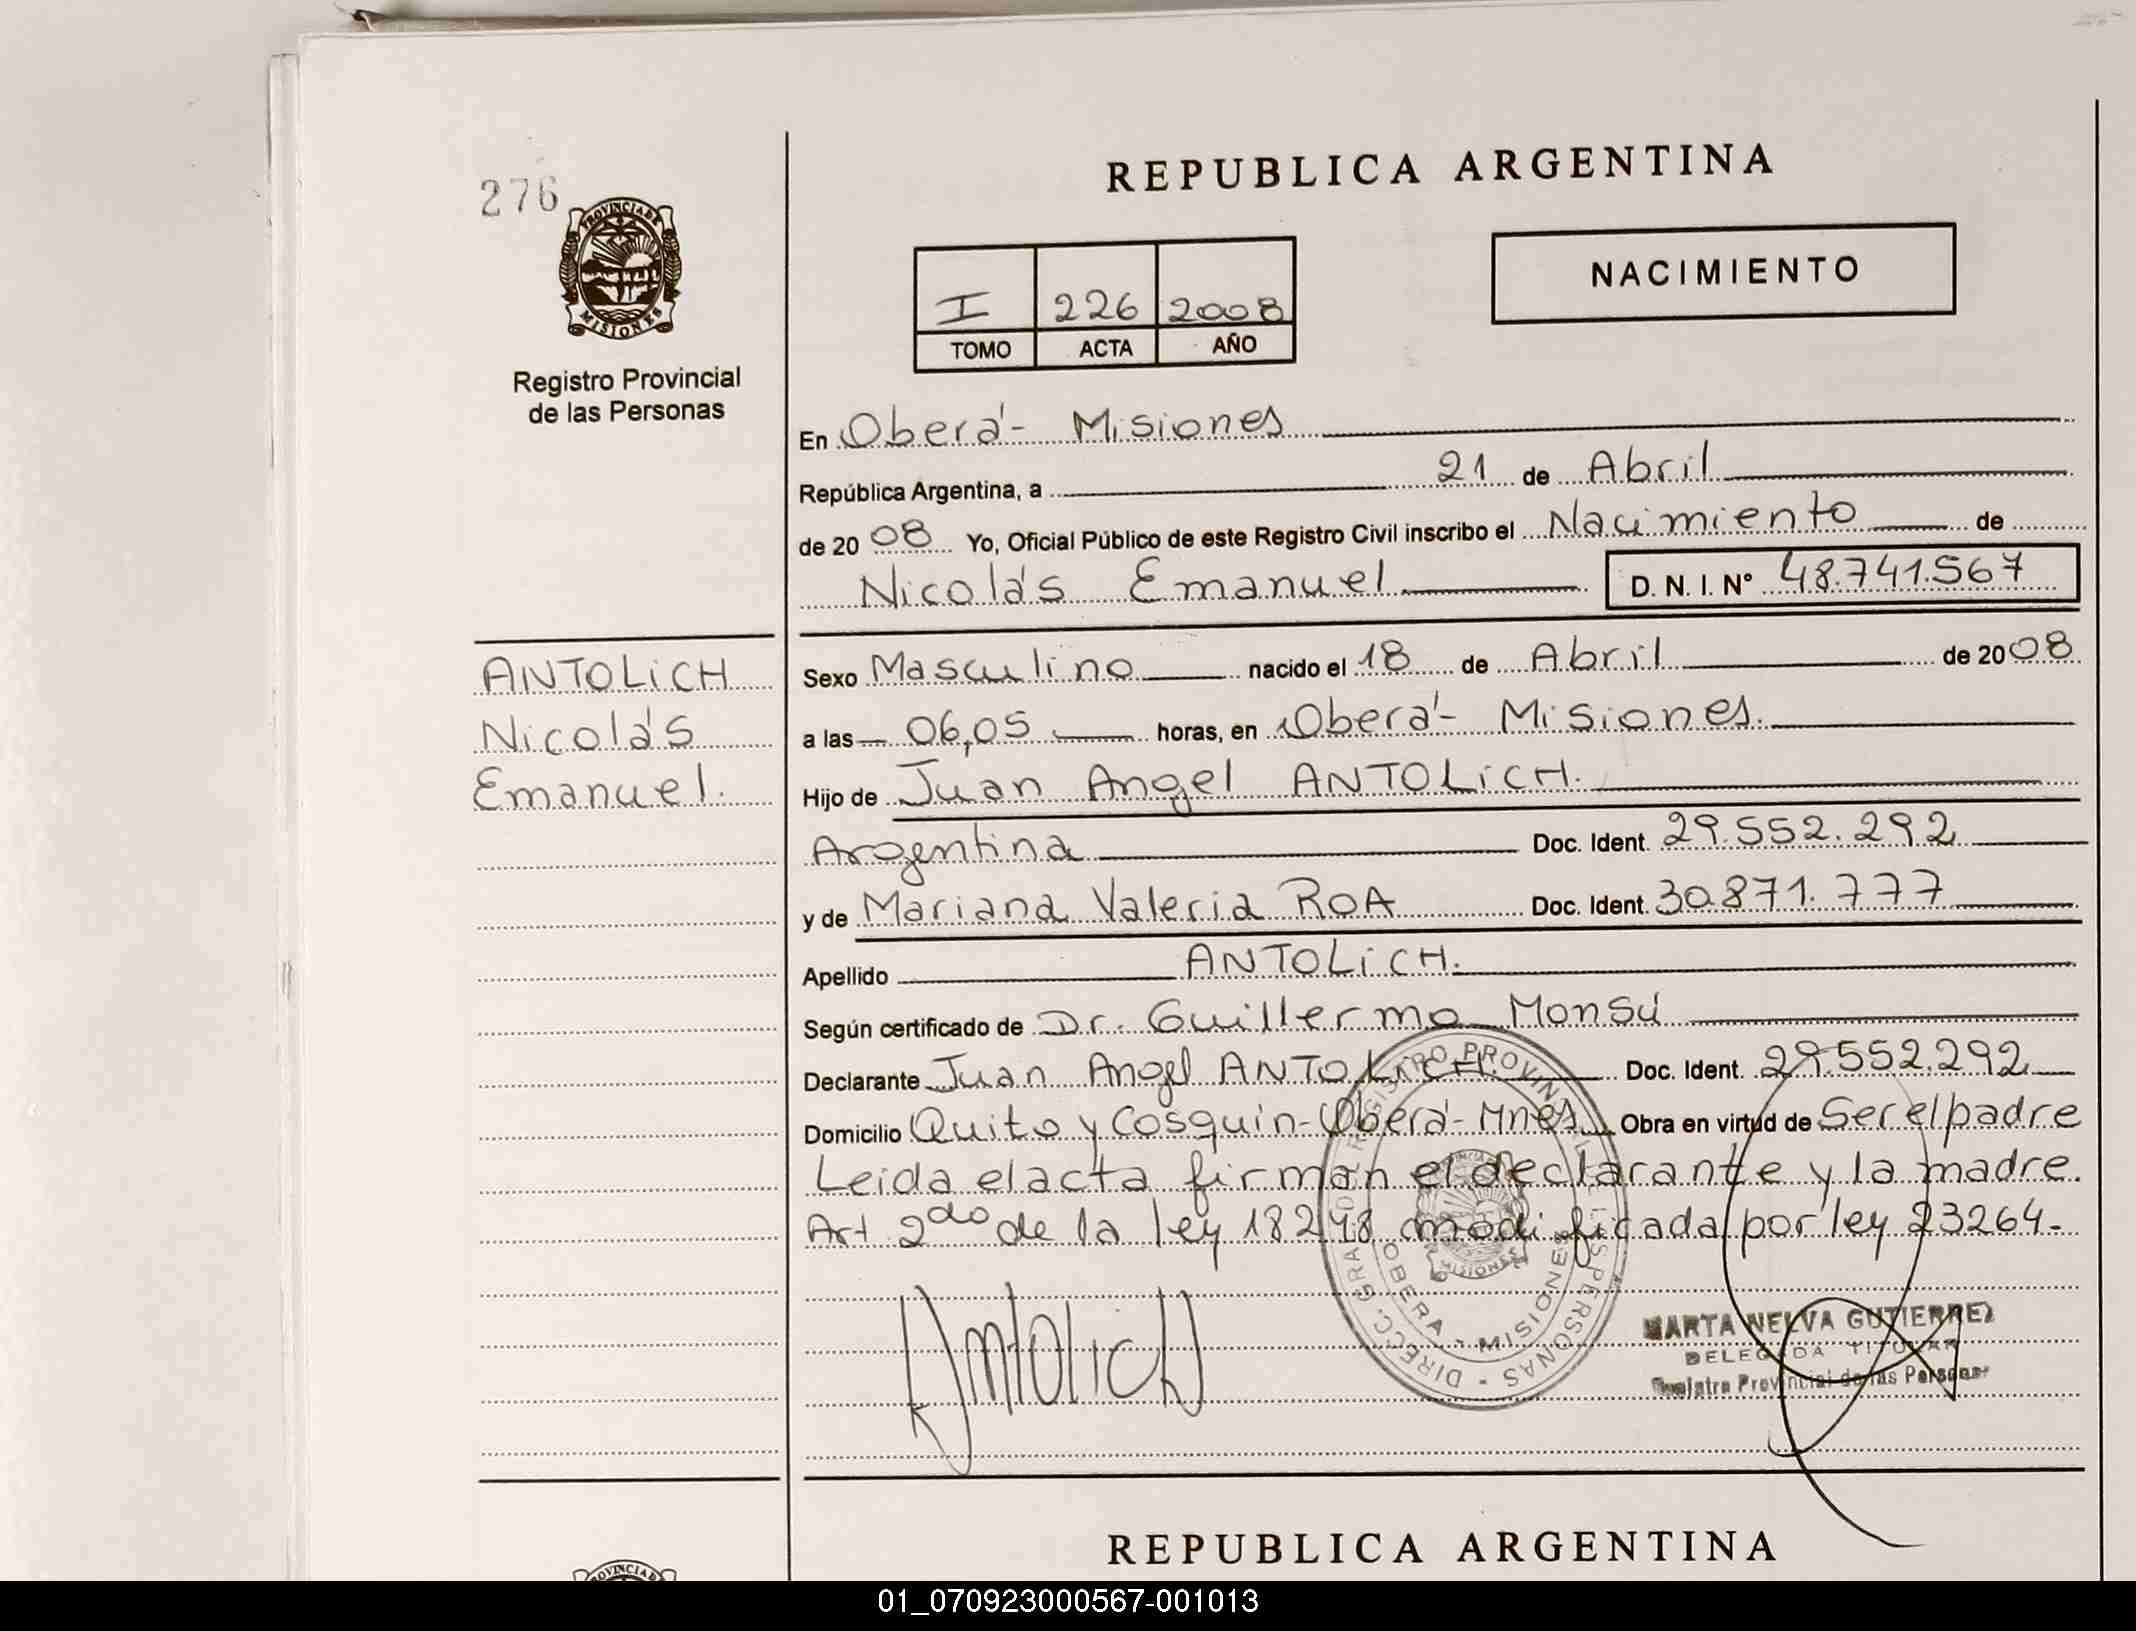 REPUBLICA ARGENTINA
276
PROVINCIA DE
MISIONES
Registro Provincial
de las Personas
NACIMIENTO
I 226 2008
TOMO ACTA AÑO
En Oberá- Misiones
República Argentina, a 21 de Abril
de 20 08 Yo, Oficial Público de este Registro Civil inscribo el Nacimiento de
Nicolás Emanuel D. N. I. Nº 48.741.567
ANTOLiCH
Nicolás
Emanuel.
Sexo Masculino nacido el 18 de Abril de 20 08
a las 06,05 horas, en Oberá- Misiones.
Hijo de Juan Angel ANTOLiCH.
Argentina Doc. Ident. 29.552.292
y de Mariana Valeria ROA Doc. Ident. 30.871.777
Apellido ANTOLiCH.
Según certificado de Dr. Guillermo Monsú
Declarante Juan Angel ANTOLiCH. Doc. Ident. 29.552.292
Domicilio Quito y Cosquin-Oberá-Mnes. Obra en virtud de Ser el padre
Leida el acta firman el declarante y la madre.
Art 2do de la ley 18248 modificada por ley 23264-
DIRECC. GRAL. DE REGISTRO PROVINCIAL DE LAS PERSONAS
OBERA - MISIONES
MISIONES
Antolich
MARTA NELVA GUTIERREZ
DELEGADA TITULAR
Registro Provincial de las Personas
REPUBLICA ARGENTINA
PROVINCIA
01_070923000567-001013